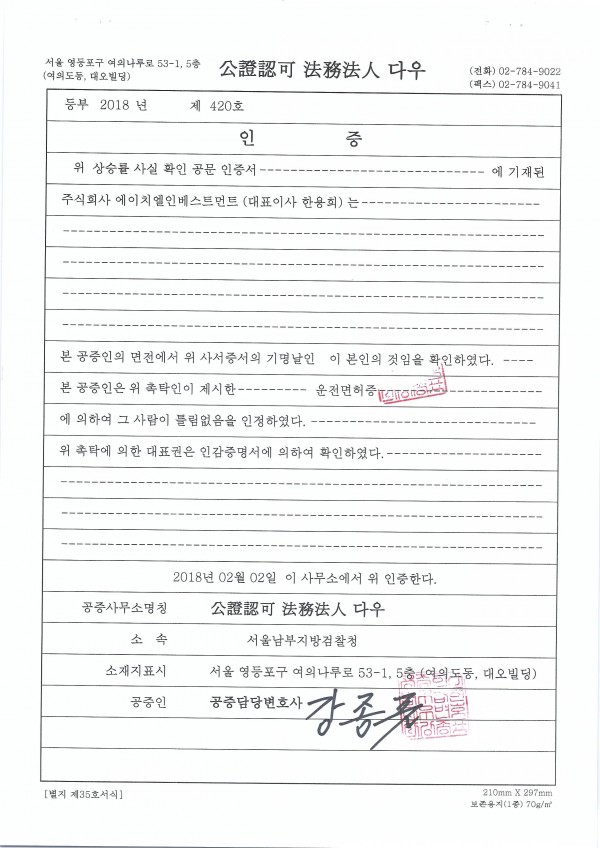 서울 영등포구 여의나루로 53-1, 5층
(여의도동, 대오빌딩)
公證認可 法務法人 다우
(전화) 02-784-9022
(팩스) 02-784-9041
등부 2018 년 제 420호
인 증
위 상승률 사실 확인 공문 인증서------------------------------ 에 기재된
주식회사 에이치엘인베스트먼트 (대표이사 한용희) 는------------------------
본 공증인의 면전에서 위 사서증서의 기명날인 이 본인의 것임을 확인하였다. ----
본 공증인은 위 촉탁인이 제시한--------- 운전면허증
에 의하여 그 사람이 틀림없음을 인정하였다. ------------------------------
위 촉탁에 의한 대표권은 인감증명서에 의하여 확인하였다.---------------------
2018년 02월 02일 이 사무소에서 위 인증한다.
공증사무소명칭 公證認可 法務法人 다우
소 속 서울남부지방검찰청
소재지표시 서울 영등포구 여의나루로 53-1, 5층 (여의도동, 대오빌딩)
공증인 공증담당변호사 강종
[별지 제35호서식]
210mm X 297mm
보존용지(1종) 70g/㎡